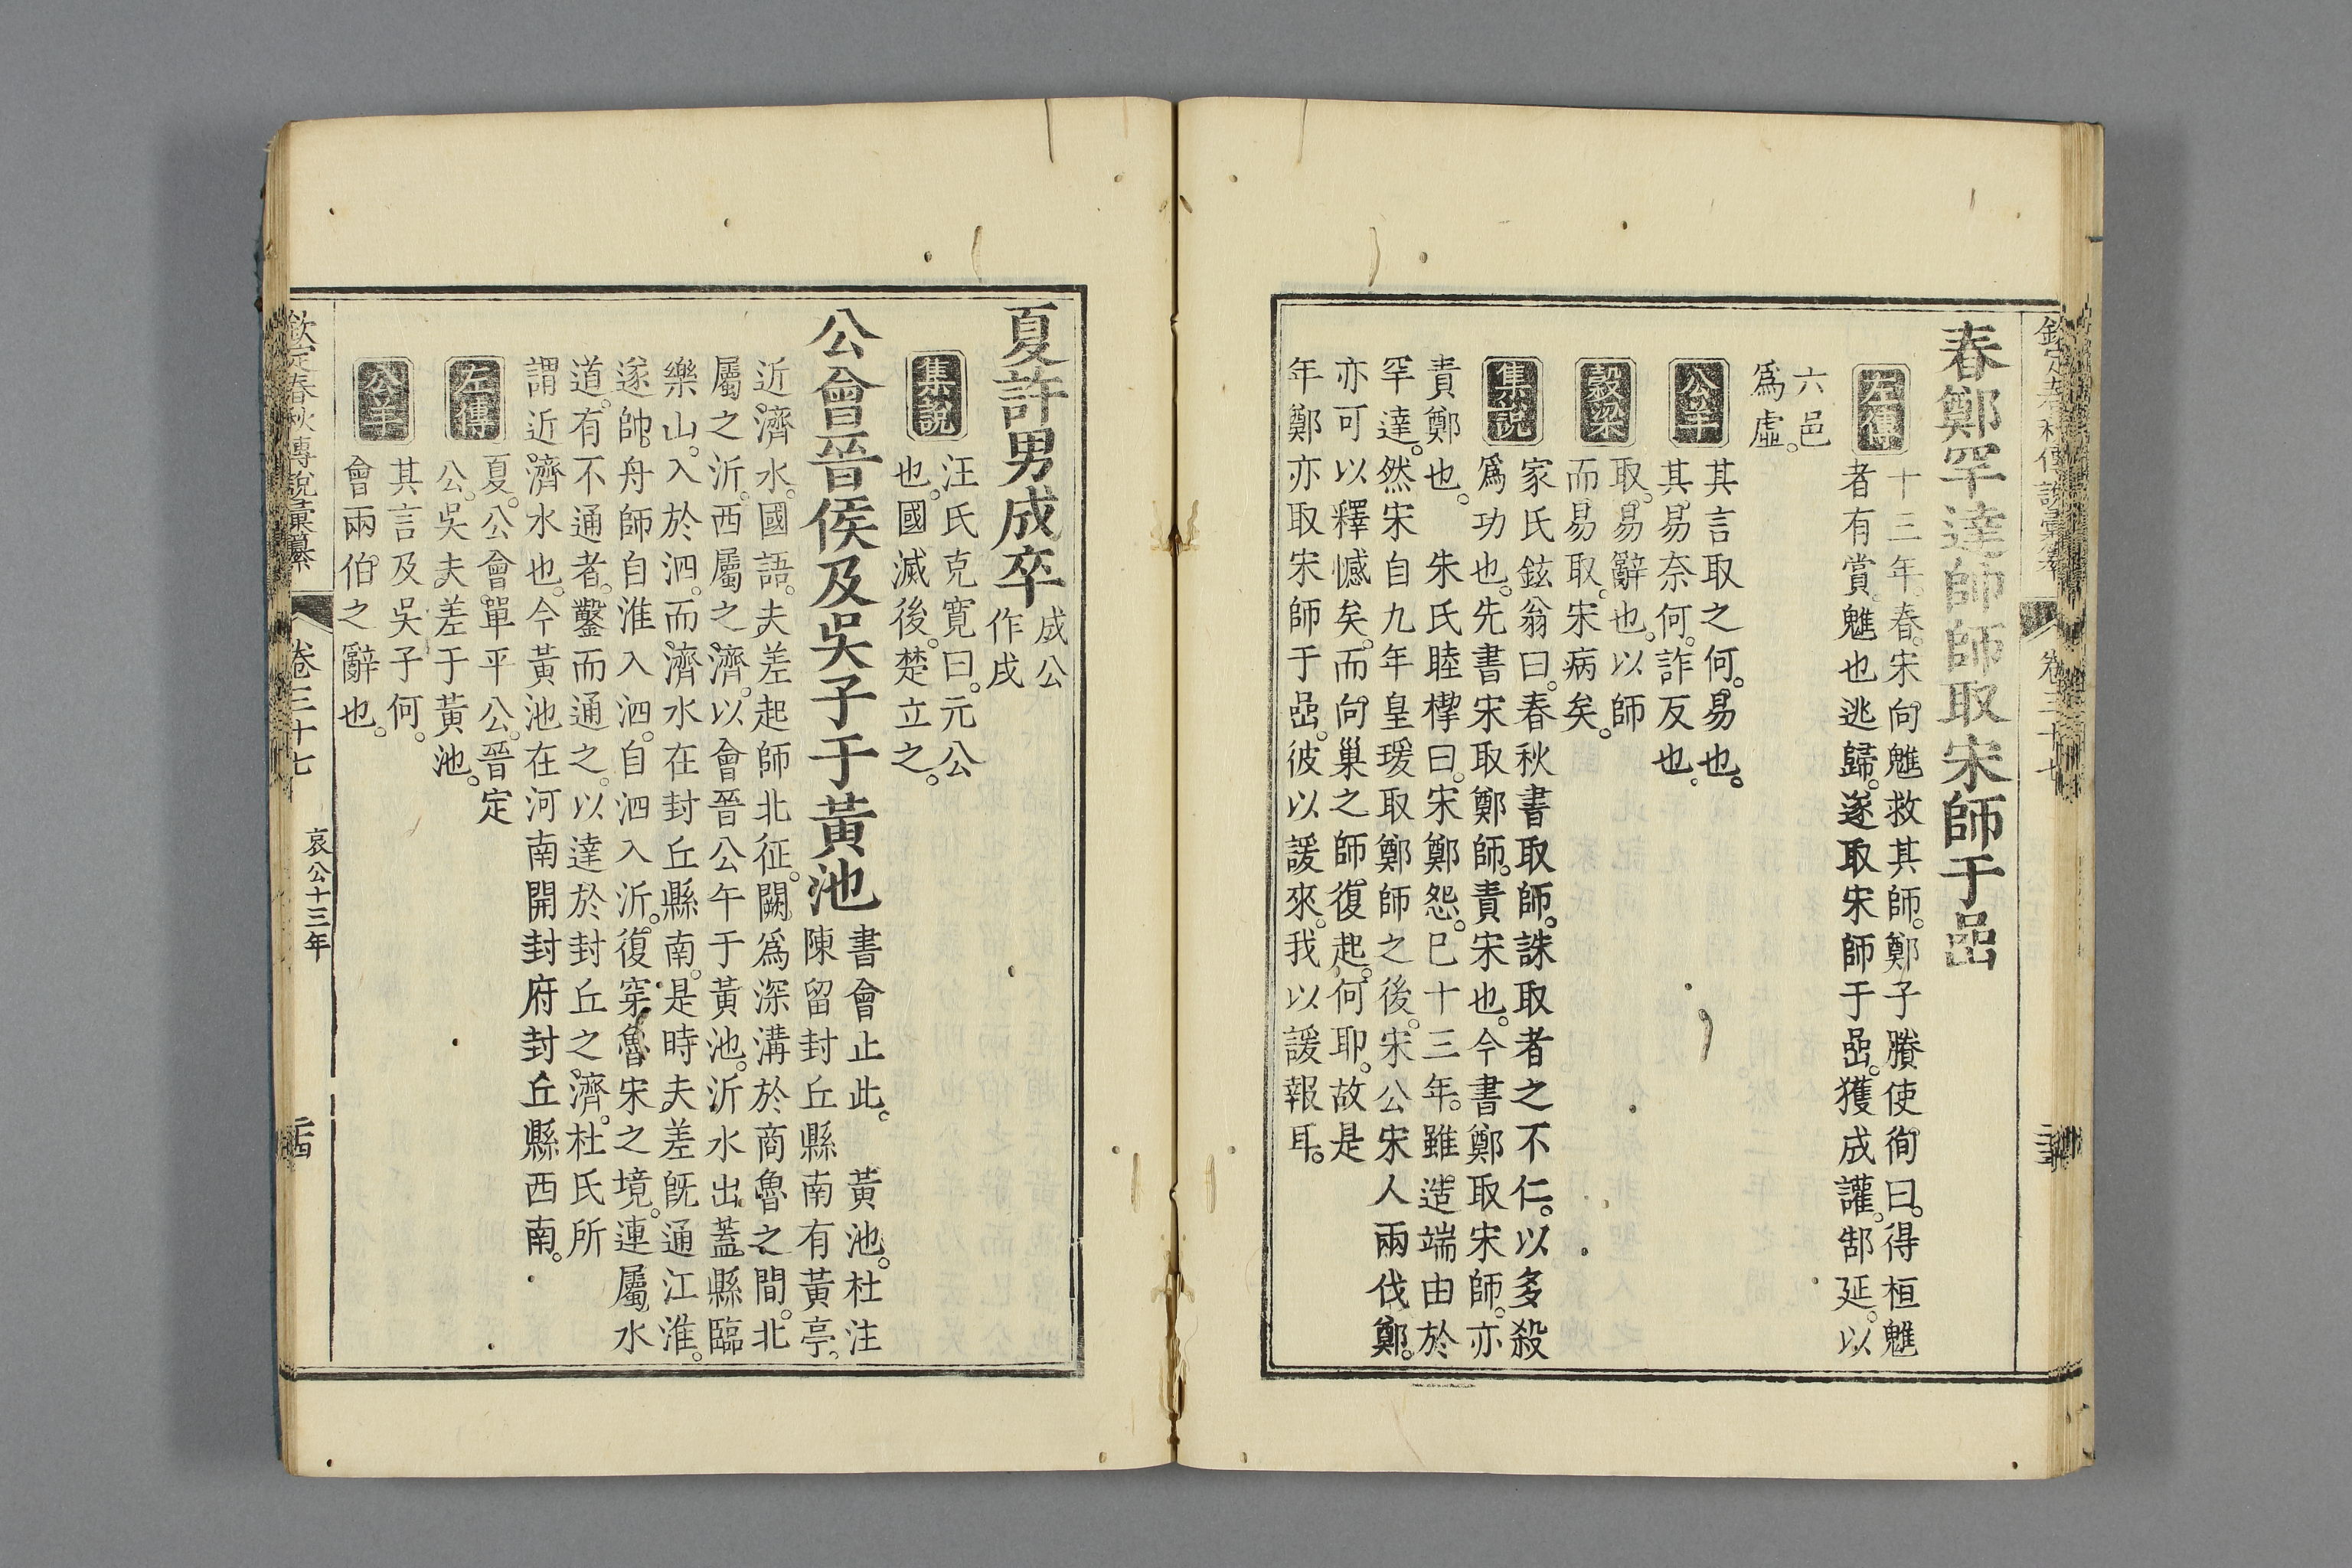 欽定春秋傳說彙纂 卷三十七
春鄭罕達帥師取宋師于嵒
左傳
十三年。春。宋向魋救其師。鄭子賸使徇曰。得桓魋
者有賞。魋也逃歸。遂取宋師于嵒。獲成讙。郜延。以
六邑
爲虛。
公羊
其言取之何。易也。
其易奈何。詐反也。
穀梁
取。易辭也。以師
而易取。宋病矣。
集說
家氏鉉翁曰。春秋書取師。誅取者之不仁。以多殺
爲功也。先書宋取鄭師。責宋也。今書鄭取宋師。亦
責鄭也。 朱氏睦㮮曰。宋鄭怨。已十三年。雖造端由於
罕達。然宋自九年皇瑗取鄭師之後。宋公宋人兩伐鄭。
亦可以釋憾矣。而向巢之師。復起。何耶。故是
年鄭亦取宋師于嵒。彼以諼來。我以諼報耳。
夏許男成卒
成公
作戌
集說
汪氏克寬曰。元公
也。國滅後。楚立之。
公會晉侯及吳子于黃池
書會止此。 黃池。杜注
陳留封丘縣南有黃亭。
近濟水。國語。夫差起師北征。闕爲深溝於商魯之間。北
屬之沂。西屬之濟。以會晉公午于黃池。沂水出蓋縣臨
樂山。入於泗。而濟水在封丘縣南。是時夫差旣通江淮。
遂帥舟師自淮入泗。自泗入沂。復穿魯宋之境。連屬水
道。有不通者。鑿而通之。以達於封丘之濟。杜氏所
謂近濟水也。今黃池在河南開封府封丘縣西南。
左傳
夏。公會單平公。晉定
公。吳夫差于黃池。
公羊
其言及吳子何。
會兩伯之辭也。
欽定春秋傳說彙纂 卷三十七 哀公十三年 二十四